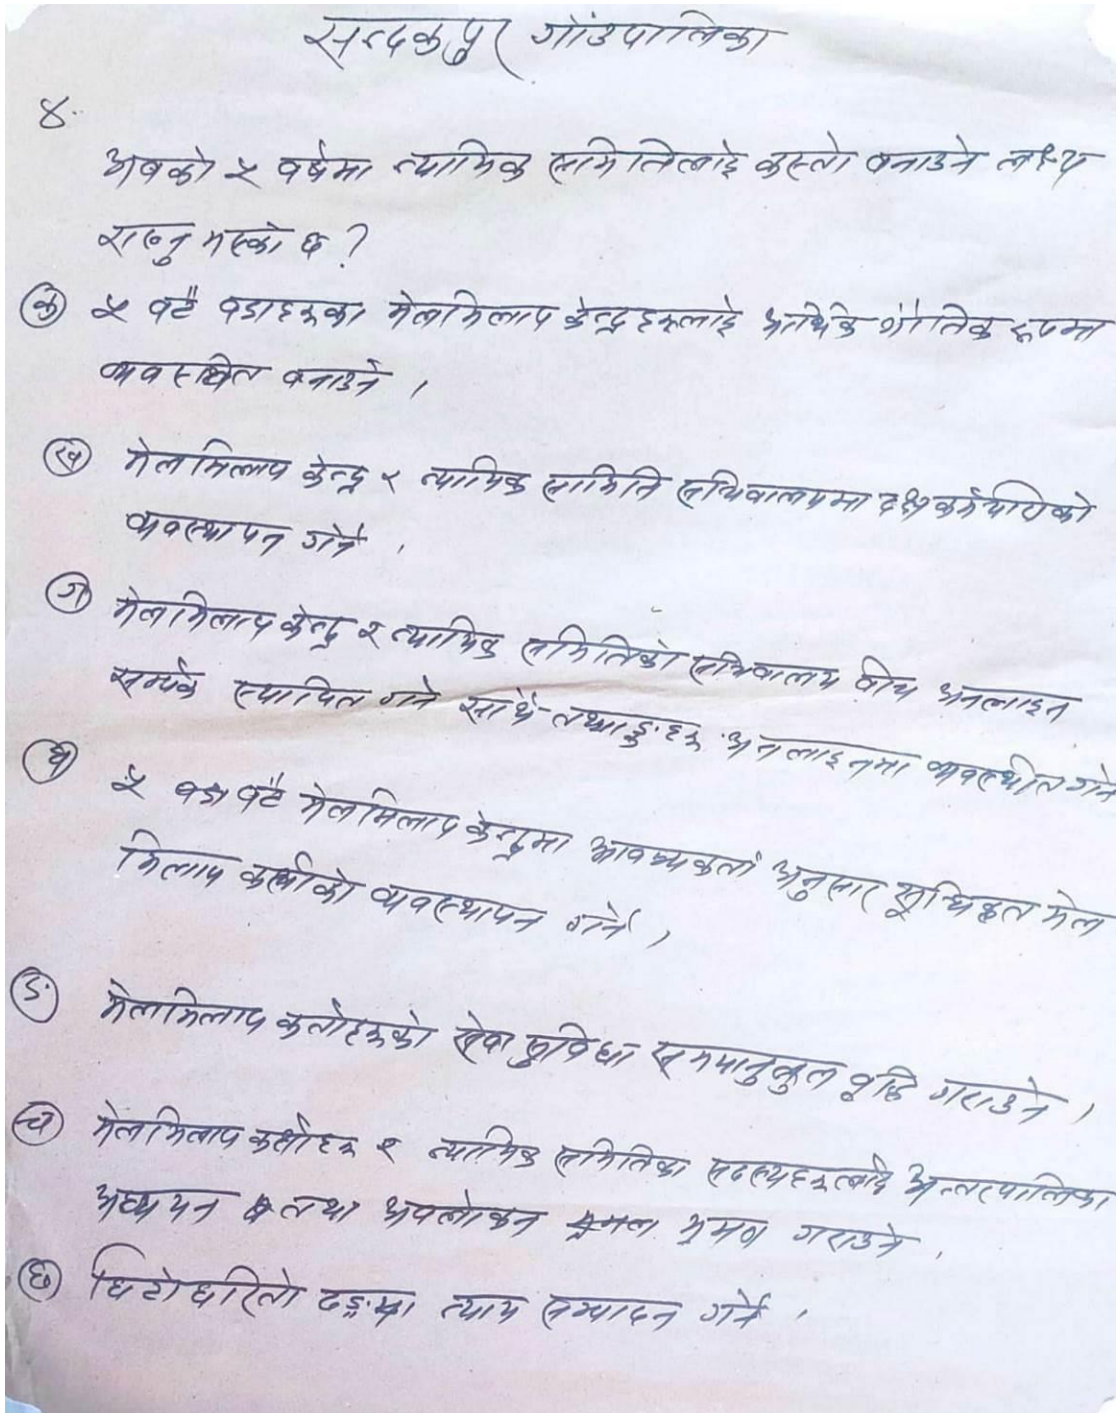 सन्दकपुर गाँउपालिका
४.
अबको ५ वर्षमा न्यायिक समितिलाई कस्तो बनाउने लक्ष्य
राख्नु भएको छ ?
(क) ५ वटै वडाहरुका मेलमिलाप केन्द्रहरुलाई आर्थिक भौतिक रूपमा
व्यवस्थित बनाउने ।
(ख) मेलमिलाप केन्द्र र न्यायिक समिति सचिवालयमा दक्ष कर्मचारीको
व्यवस्थापन गर्ने ।
(ग) मेलमिलाप केन्द्र र न्यायिक समितिको सचिवालय बीच अनलाइन
सम्पर्क स्थापित गर्ने साथै तथ्याङ्कहरु अनलाइनमा व्यवस्थीत गर्ने
(घ) ५ वडा वटै मेलमिलाप केन्द्रमा आवश्यकता अनुसार सूचिकृत मेल
मिलाप कर्ताको व्यवस्थापन गर्ने ।
(ङ) मेलमिलाप कर्ताहरुको सेवा सुविधा समयानुकुल वृद्धि गराउने ।
(च) मेलमिलाप कर्ताहरु र न्यायिक समितिका सदस्यहरुलाई अन्तरपालिका
अध्ययन तथा अवलोकन भ्रमण गराउने ।
(छ) छिटो छरितो ढङ्गमा न्याय सम्पादन गर्ने ।